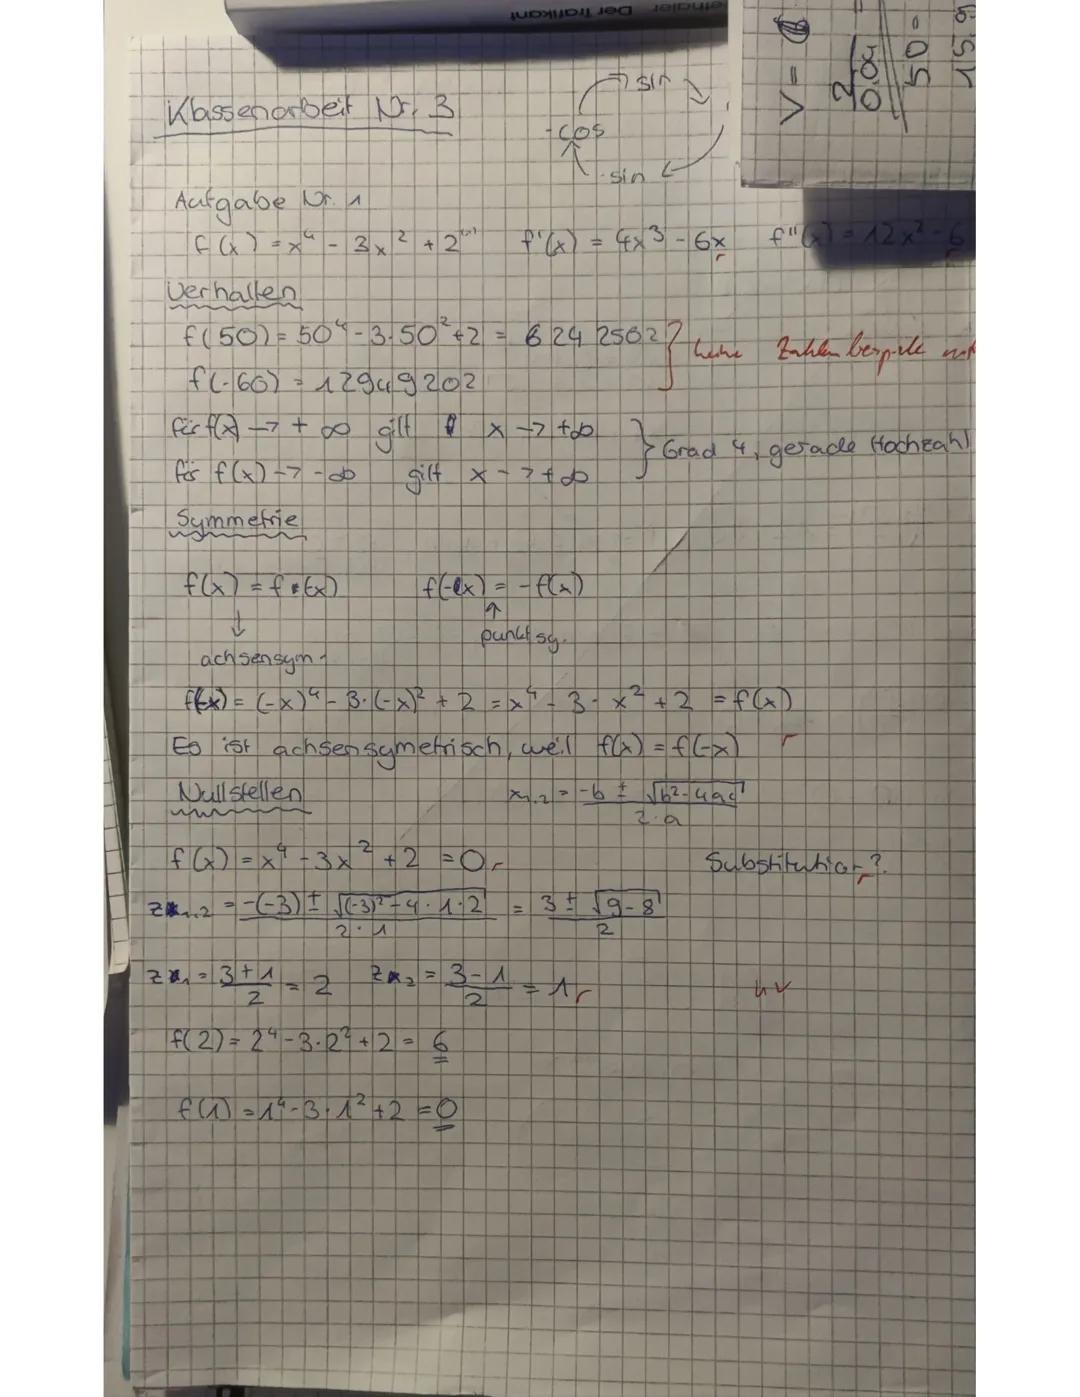 Der Trafikant
Klassenarbeit Nr. 3
sin
-cos
-sin
V =
2
0.04
50
15.5
Aufgabe Nr. 1
f(x) = x⁴ - 3x² + 2 f'(x) = 4x³ - 6x f''(x) = 12x² - 6
Verhalten
f(50) = 50⁴ - 3·50² + 2 = 6242502
f(-60) = 12949202
keine Zahlenbeispiele
für f(x) -> + ∞ gilt x -> +∞
für f(x) -> -∞ gilt x -> +∞
Grad 4, gerade Hochzahl
Symmetrie
f(x) = f(-x) f(-x) = -f(x)
↓ ↑
punktsy.
achsensym.
f(-x) = (-x)⁴ - 3·(-x)² + 2 = x⁴ - 3·x² + 2 = f(x)
Es ist achsensymetrisch, weil f(x) = f(-x) r
Nullstellen x₁.₂ = (-b ± √(b²-4ac)) / (2·a)
f(x) = x⁴ - 3x² + 2 = 0 r Substitution?
z₁.₂ = (-(-3) ± √((-3)² - 4·1·2)) / (2·1) = (3 ± √(9-8)) / 2
z₁ = (3+1)/2 = 2 z₂ = (3-1)/2 = 1 r
f(2) = 2⁴ - 3·2² + 2 = 6
f(1) = 1⁴ - 3·1² + 2 = 0